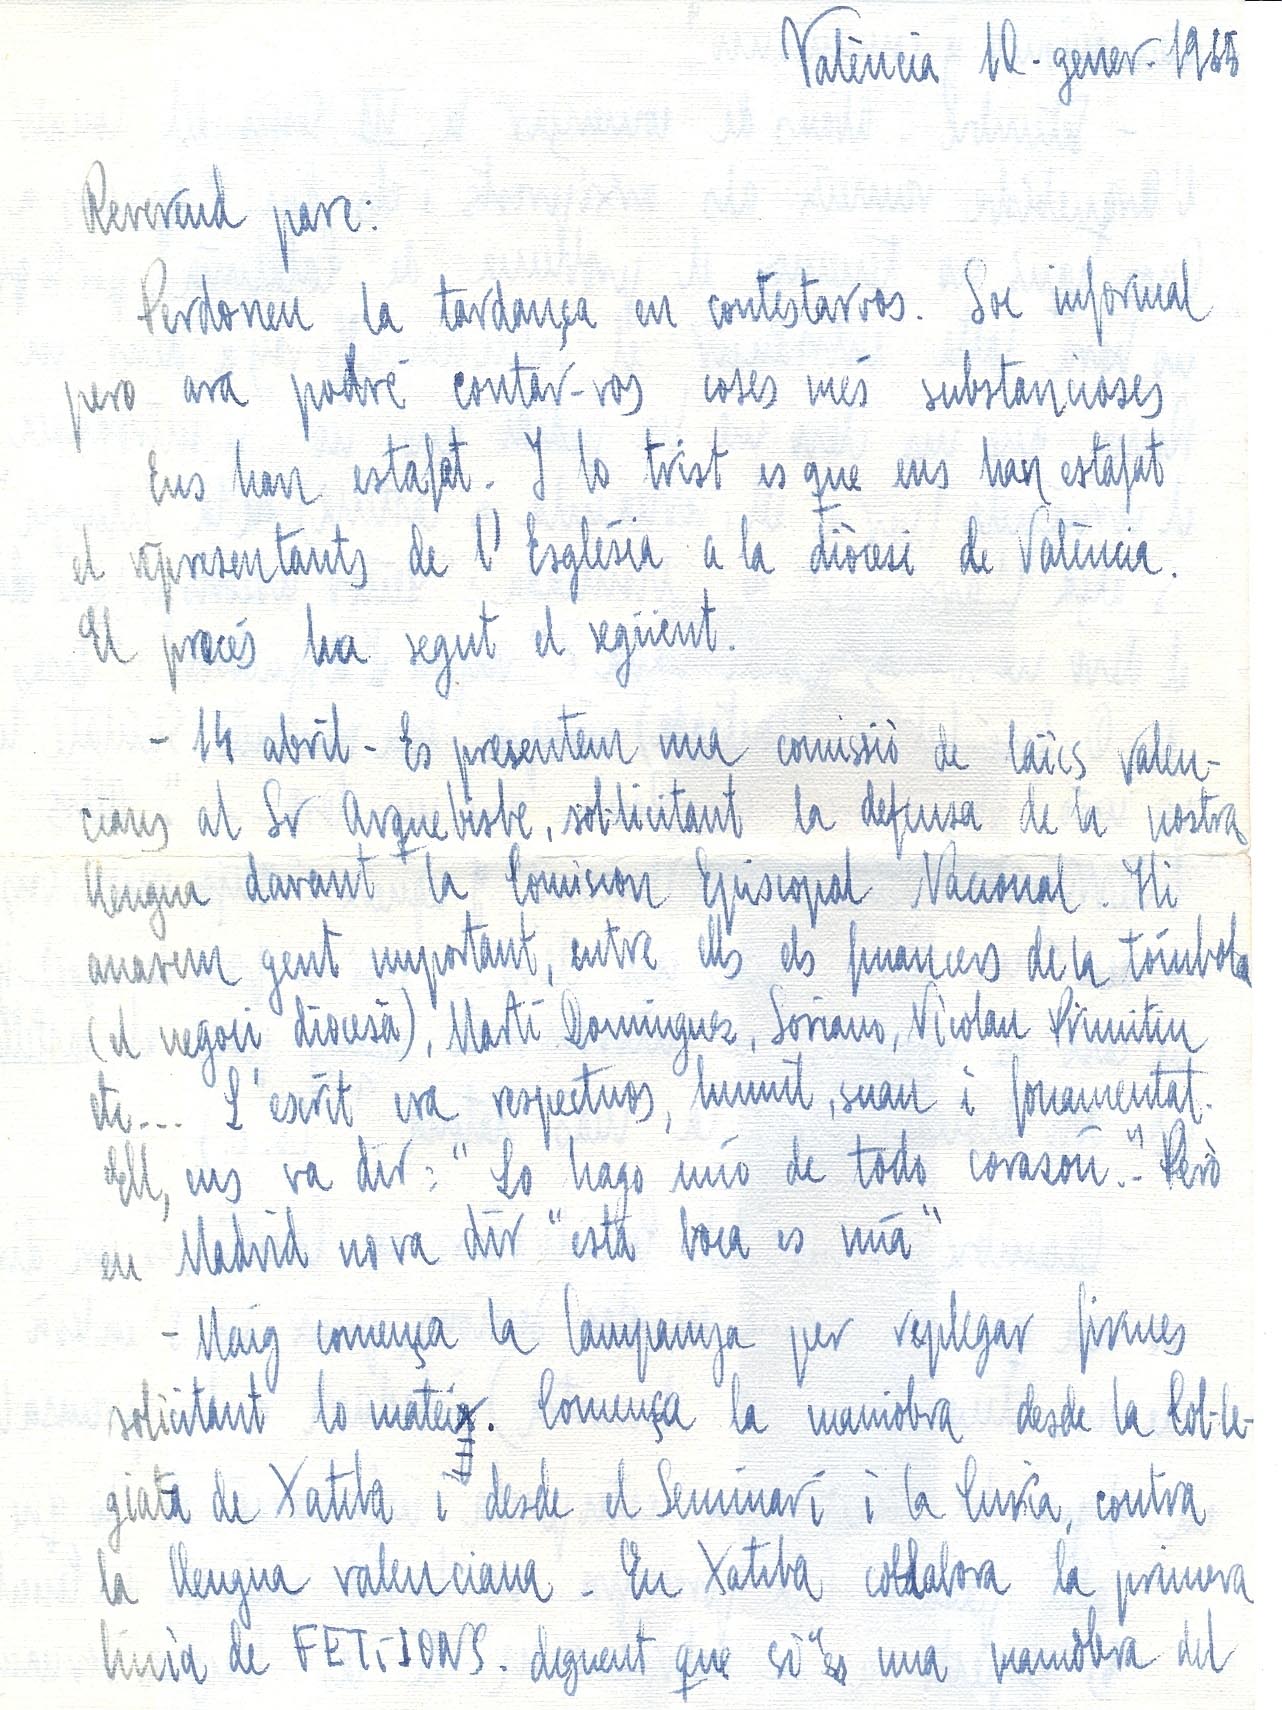 València 12-gener-1965
Reverend pare:
Perdoneu la tardança en contestarvos. Soc informal
pero ara podré contar-vos coses més substancioses
Ens han estafat. I lo trist es que ens han estafat
el representants de l'Església a la diòcesi de València.
El procés ha segut el següent.
- 14 abril - Es presentem una comissiò de laïcs valen-
cians al Sr Arquebisbe, sol·licitant la defensa de la nostra
llengua davant la Comision Episcopal Nacional. Hi
anarem gent important, entre ells els financers de la tómbola
(el negoci diocesà), Martí Dominguez, Soriano, Nicolau Primitiu
etc... L'escrit era respectuos, humil, suau i fonamentat.
Ell, ens va dir: "Lo hago mío de todo corasón." - Però
en Madrid no va dir "esta boca es mía"
- Maig comença la Campanya per replegar firmes
solicitant lo mateix. Comença la maniobra desde la Col·le-
giata de Xativa i desde el Seminari i la Curia, contra
la llengua valenciana - En Xativa collabora la primera
línia de FET-JONS. diguent que si "es una maniobra del